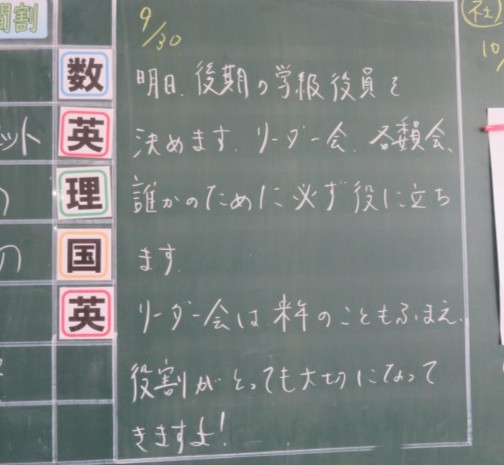 間割
数
英
理
国
英
ット
の
9/30
明日、後期の学級役員を
決めます。リーダー会、各委員会、
誰かのために必ず役に立ち
ます。
リーダー会は来年のこともふまえ、
役割がとっても大切になって
きますよ!
社
10/